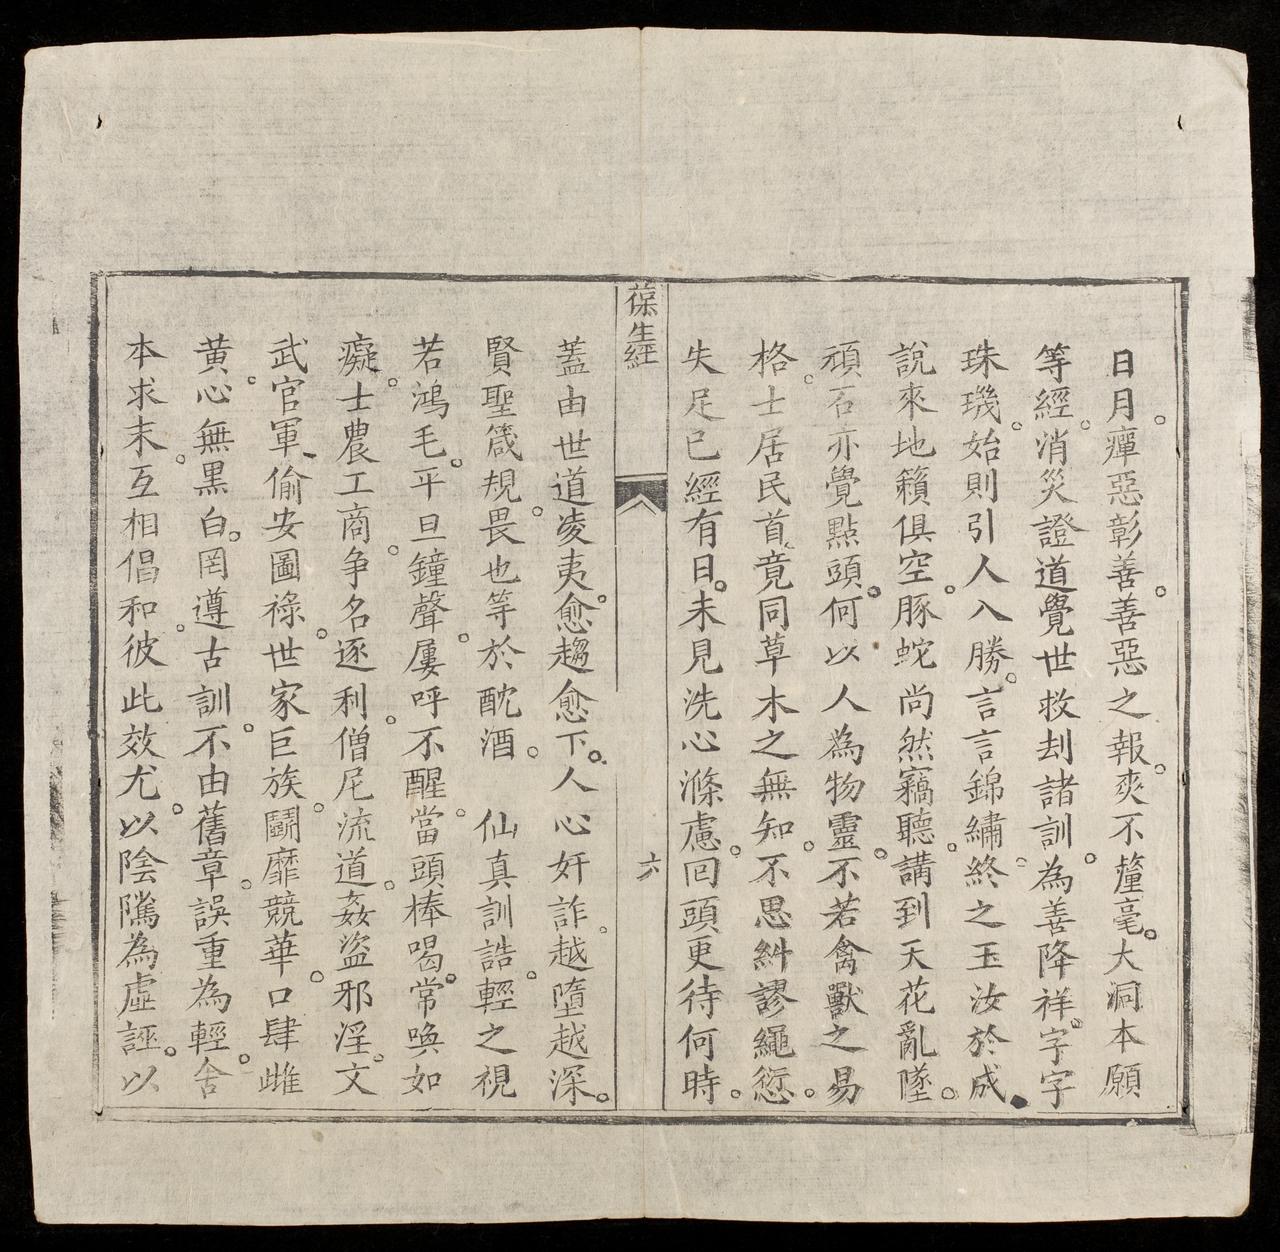 日月。癉惡彰善。善惡之報。爽不釐毫。大洞本願
等經。消災證道。覺世救刦諸訓。為善降祥。字字
珠璣。始則引人入勝。言言錦繡。終之玉汝於成。
說來地籟俱空。豚蛇尚然竊聽。講到天花亂墜。
頑石亦覺點頭。何以人為物靈。不若禽獸之易
格。士居民首。竟同草木之無知。不思糾謬繩愆。
失足已經有日。未見洗心滌慮。回頭更待何時。
葆生經
六
蓋由世道凌夷。愈趨愈下。人心奸詐。越墮越深。
賢聖箴規。畏也等於酖酒。仙真訓誥。輕之視
若鴻毛。平旦鐘聲。屢呼不醒。當頭棒喝。常喚如
癡。士農工商。爭名逐利。僧尼流道。姦盜邪淫。文
武官軍、偷安圖祿。世家巨族。鬭靡競華。口肆雌
黃。心無黑白。罔遵古訓。不由舊章。誤重為輕。舍
本求末。互相倡和。彼此效尤。以陰隲為虛誣。以